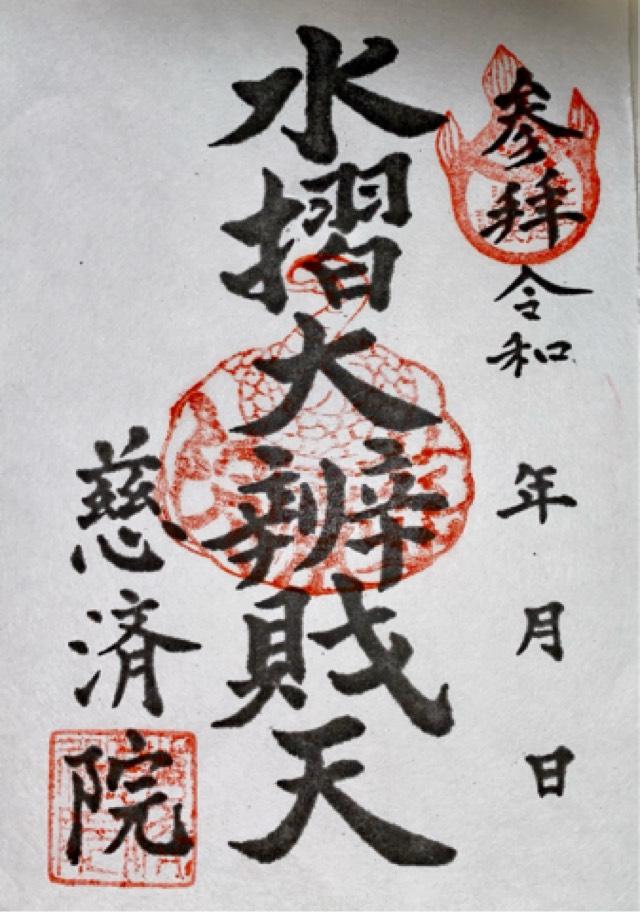 参拝令和 年 月 日
水摺大辨財天
慈済院